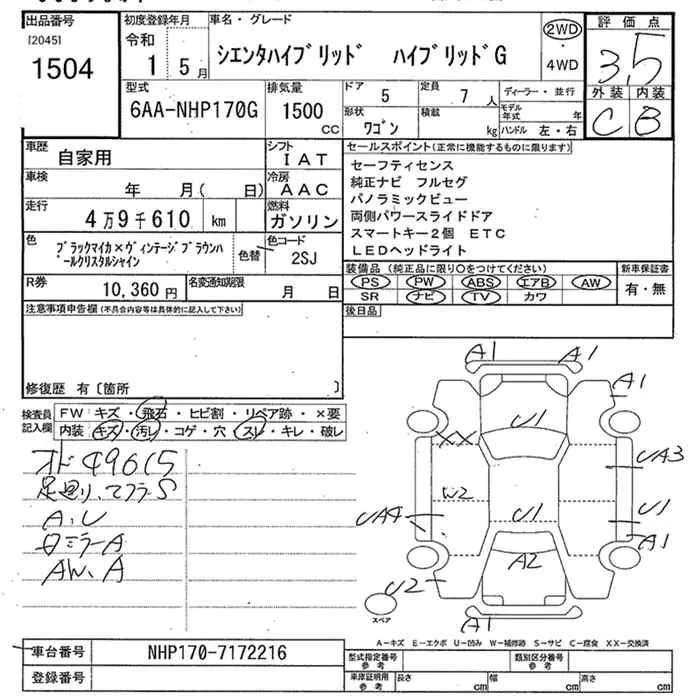 出品番号
[2045]
1504
初度登録年月
令和
1 5月
車名・グレード
シエンタハイブリッド ハイブリッドG
2WD
・
4WD
評価点
3.5
外装 内装
C B
型式
6AA-NHP170G
排気量
1500
cc
ドア
5
定員
7人
形状
ワゴン
積載
kg
ディーラー・並行
モデル年式 年
ハンドル 左・右
車歴
自家用
シフト
IAT
車検
年 月( 日)
冷房
AAC
走行
4万9千610 km
燃料
ガソリン
色
ブラックマイカ×ヴィンテージブラウンパ
ールクリスタルシャイン
色替
色コード
2SJ
R券
10,360円
名変通知期限
月 日
セールスポイント(正常に機能するものに限ります)
セーフティセンス
純正ナビ フルセグ
パノラミックビュー
両側パワースライドドア
スマートキー2個 ETC
LEDヘッドライト
装備品(純正品に限り○をつけてください)
PS PW ABS エアB AW
SR ナビ TV カワ
新車保証書
有・無
後日品
注意事項申告欄(不具合内容等は具体的に記入して下さい)
修復歴 有〔箇所 〕
検査員
記入欄
FW キズ・飛石・ヒビ割・リペア跡・×要
内装 キズ・汚レ・コゲ・穴・スレ・キレ・破レ
オド49615
足廻り、マフラーS
A、U
ロミラーA
AW、A
A1 A1
A1
U1
XX
UA3
W2
UA4
U1
U1
A1
A2
U2
A1
スペア
A-キズ E-エクボ U-凹み W-補修跡 S-サビ C-腐食 XX-交換済
車台番号
NHP170-7172216
登録番号
型式指定番号
参考
類別区分番号
参考
車庫証明用
参考
長さ cm
幅 cm
高さ cm